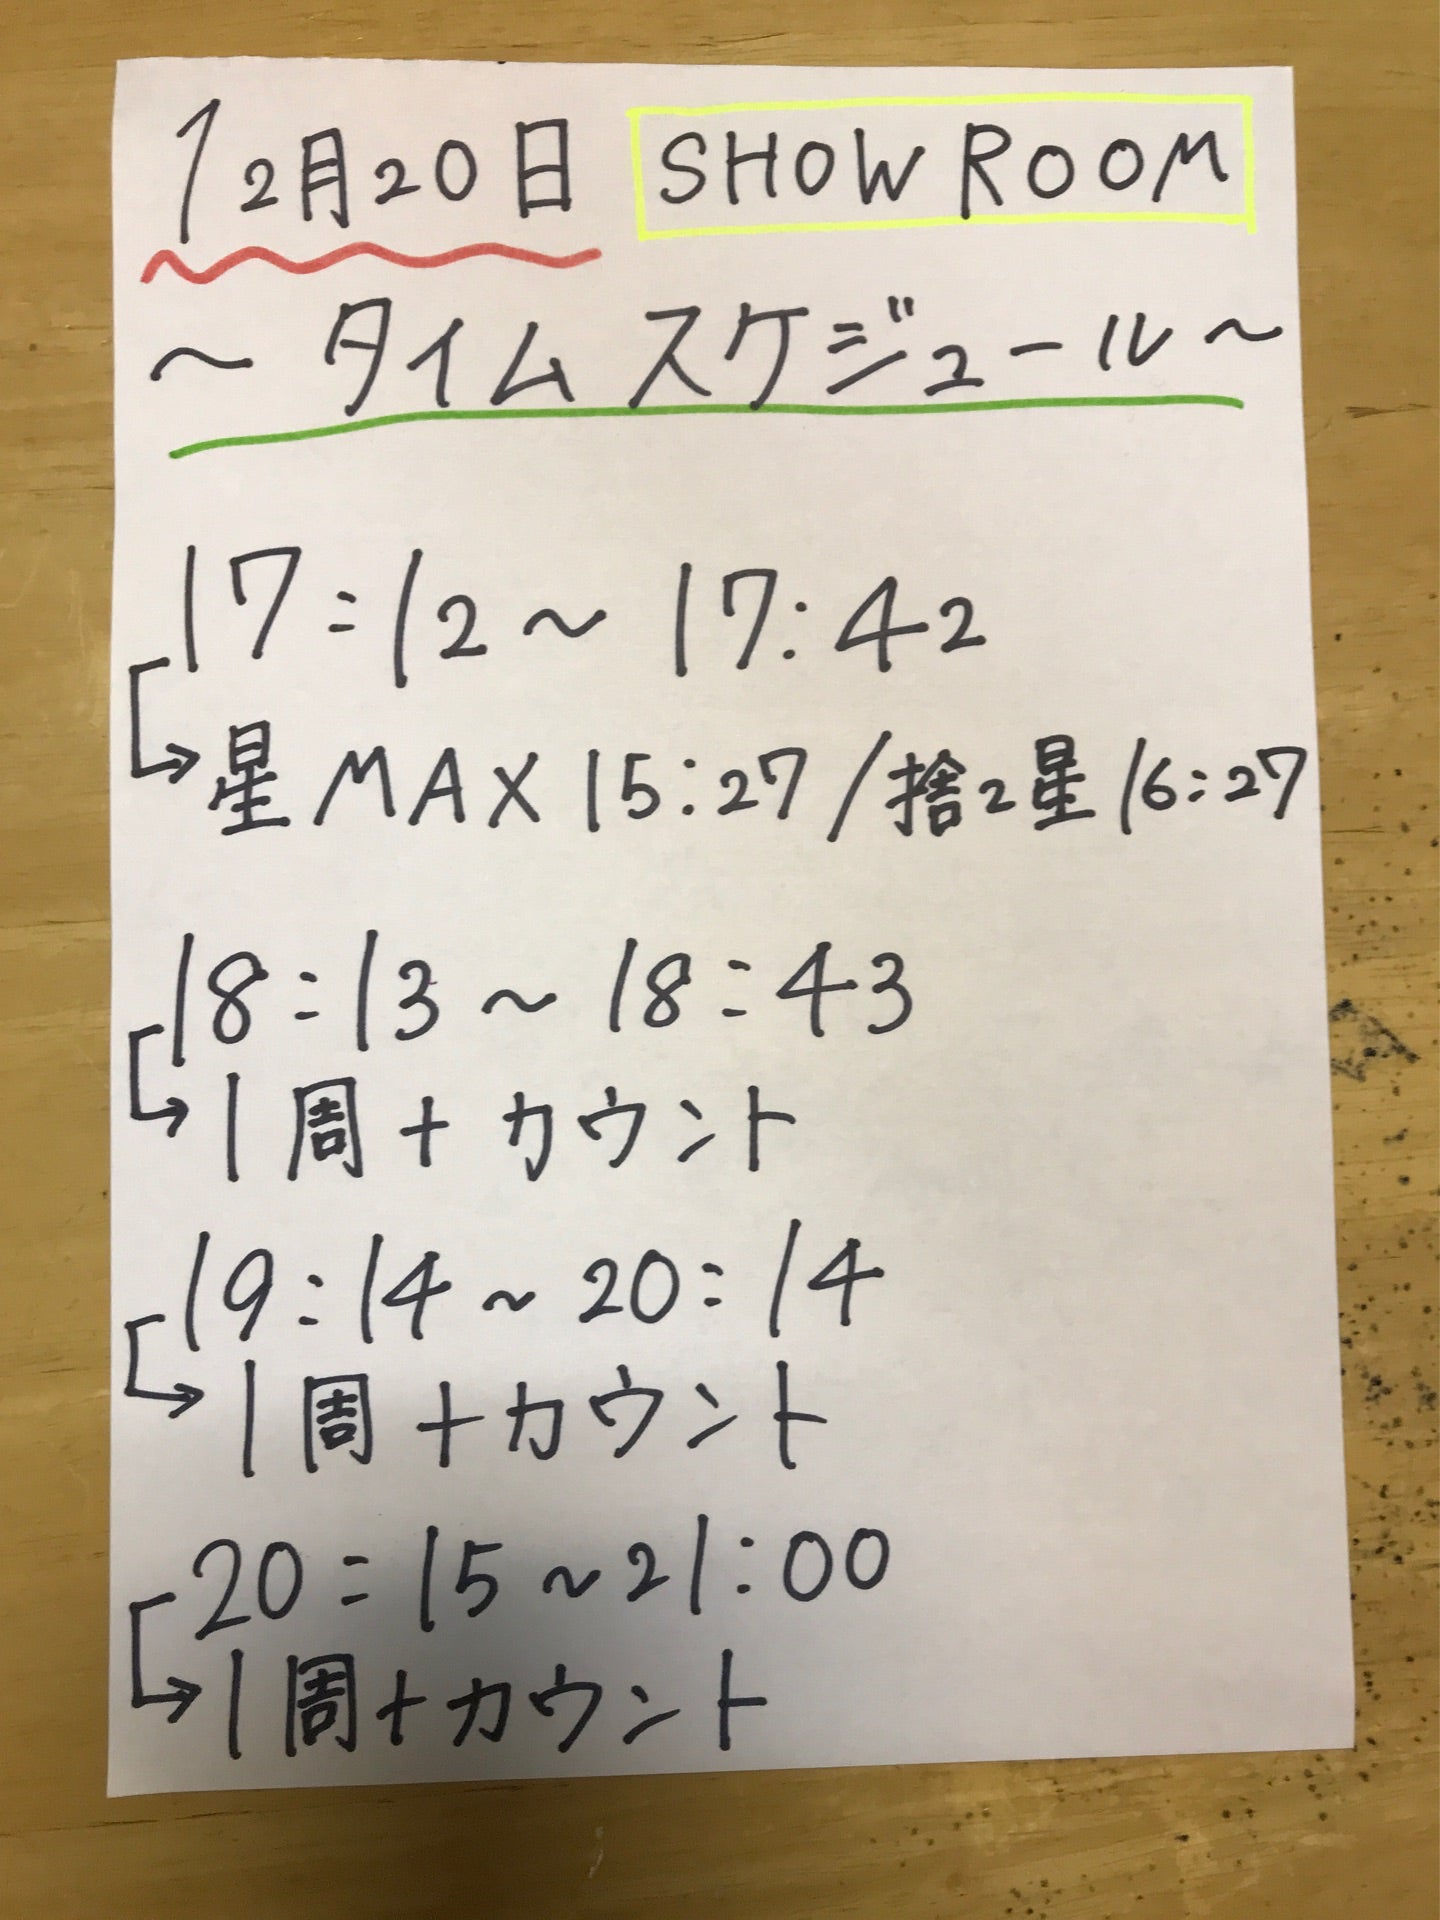 12月20日 SHOWROOM
～タイムスケジュール～
17:12～17:42
→星MAX 15:27/捨て星16:27
18:13～18:43
→1周+カウント
19:14～20:14
→1周+カウント
20:15～21:00
→1周+カウント